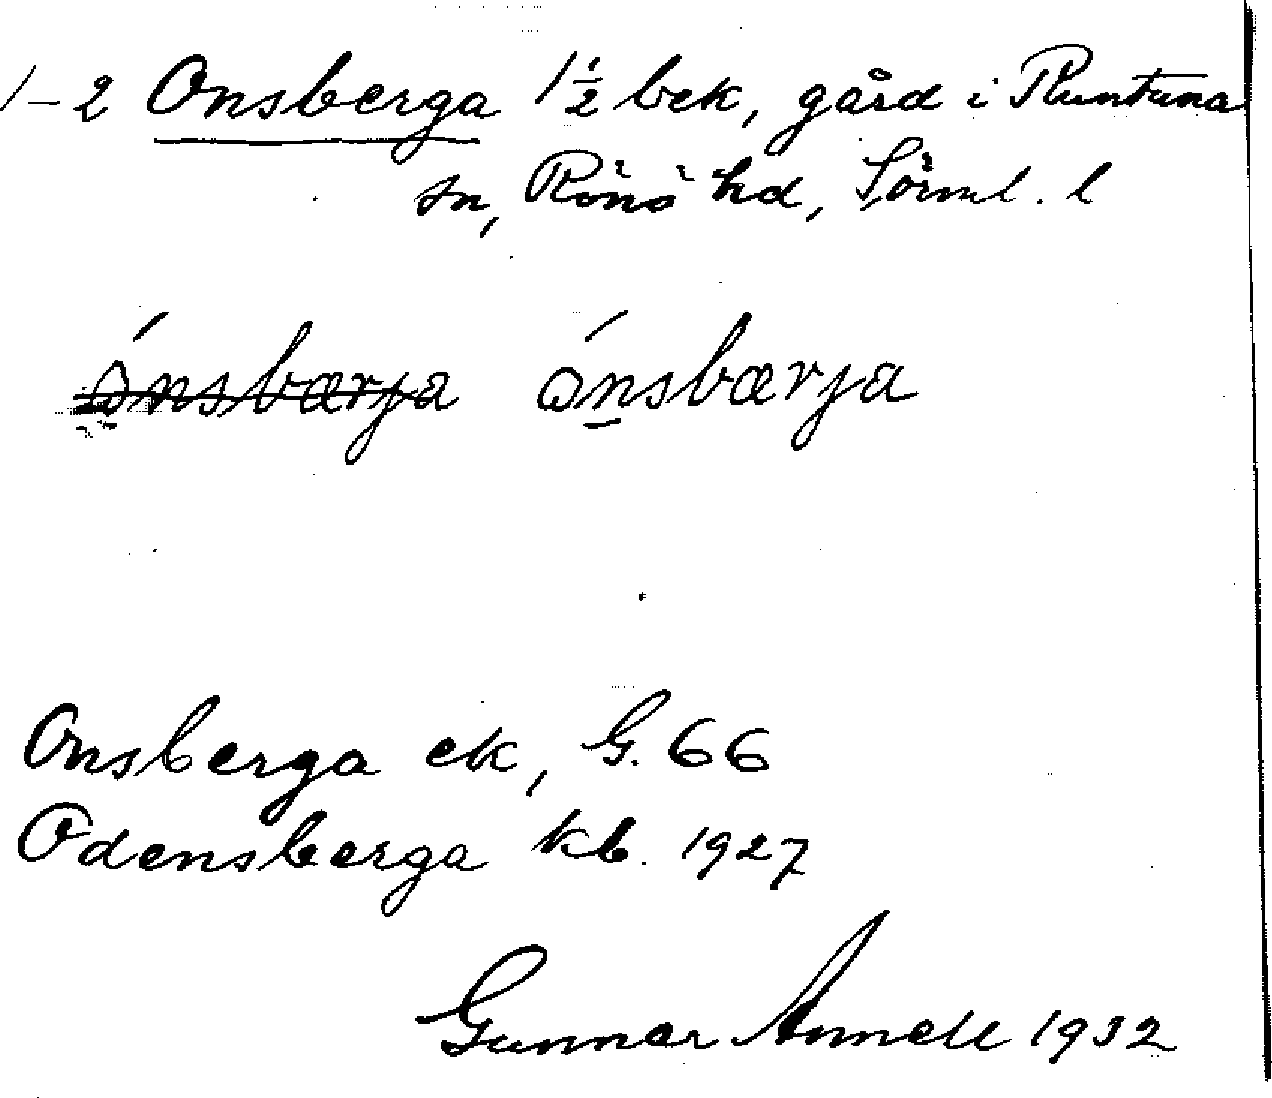 1-2 Onsberga 1½ bek, gård i Runtuna
sn, Rönö hd, Sörml. l
ónsbærja ónsbærja
Onsberga ek, G. 66
Odensberga kb. 1927
Gunnar Annell 1932